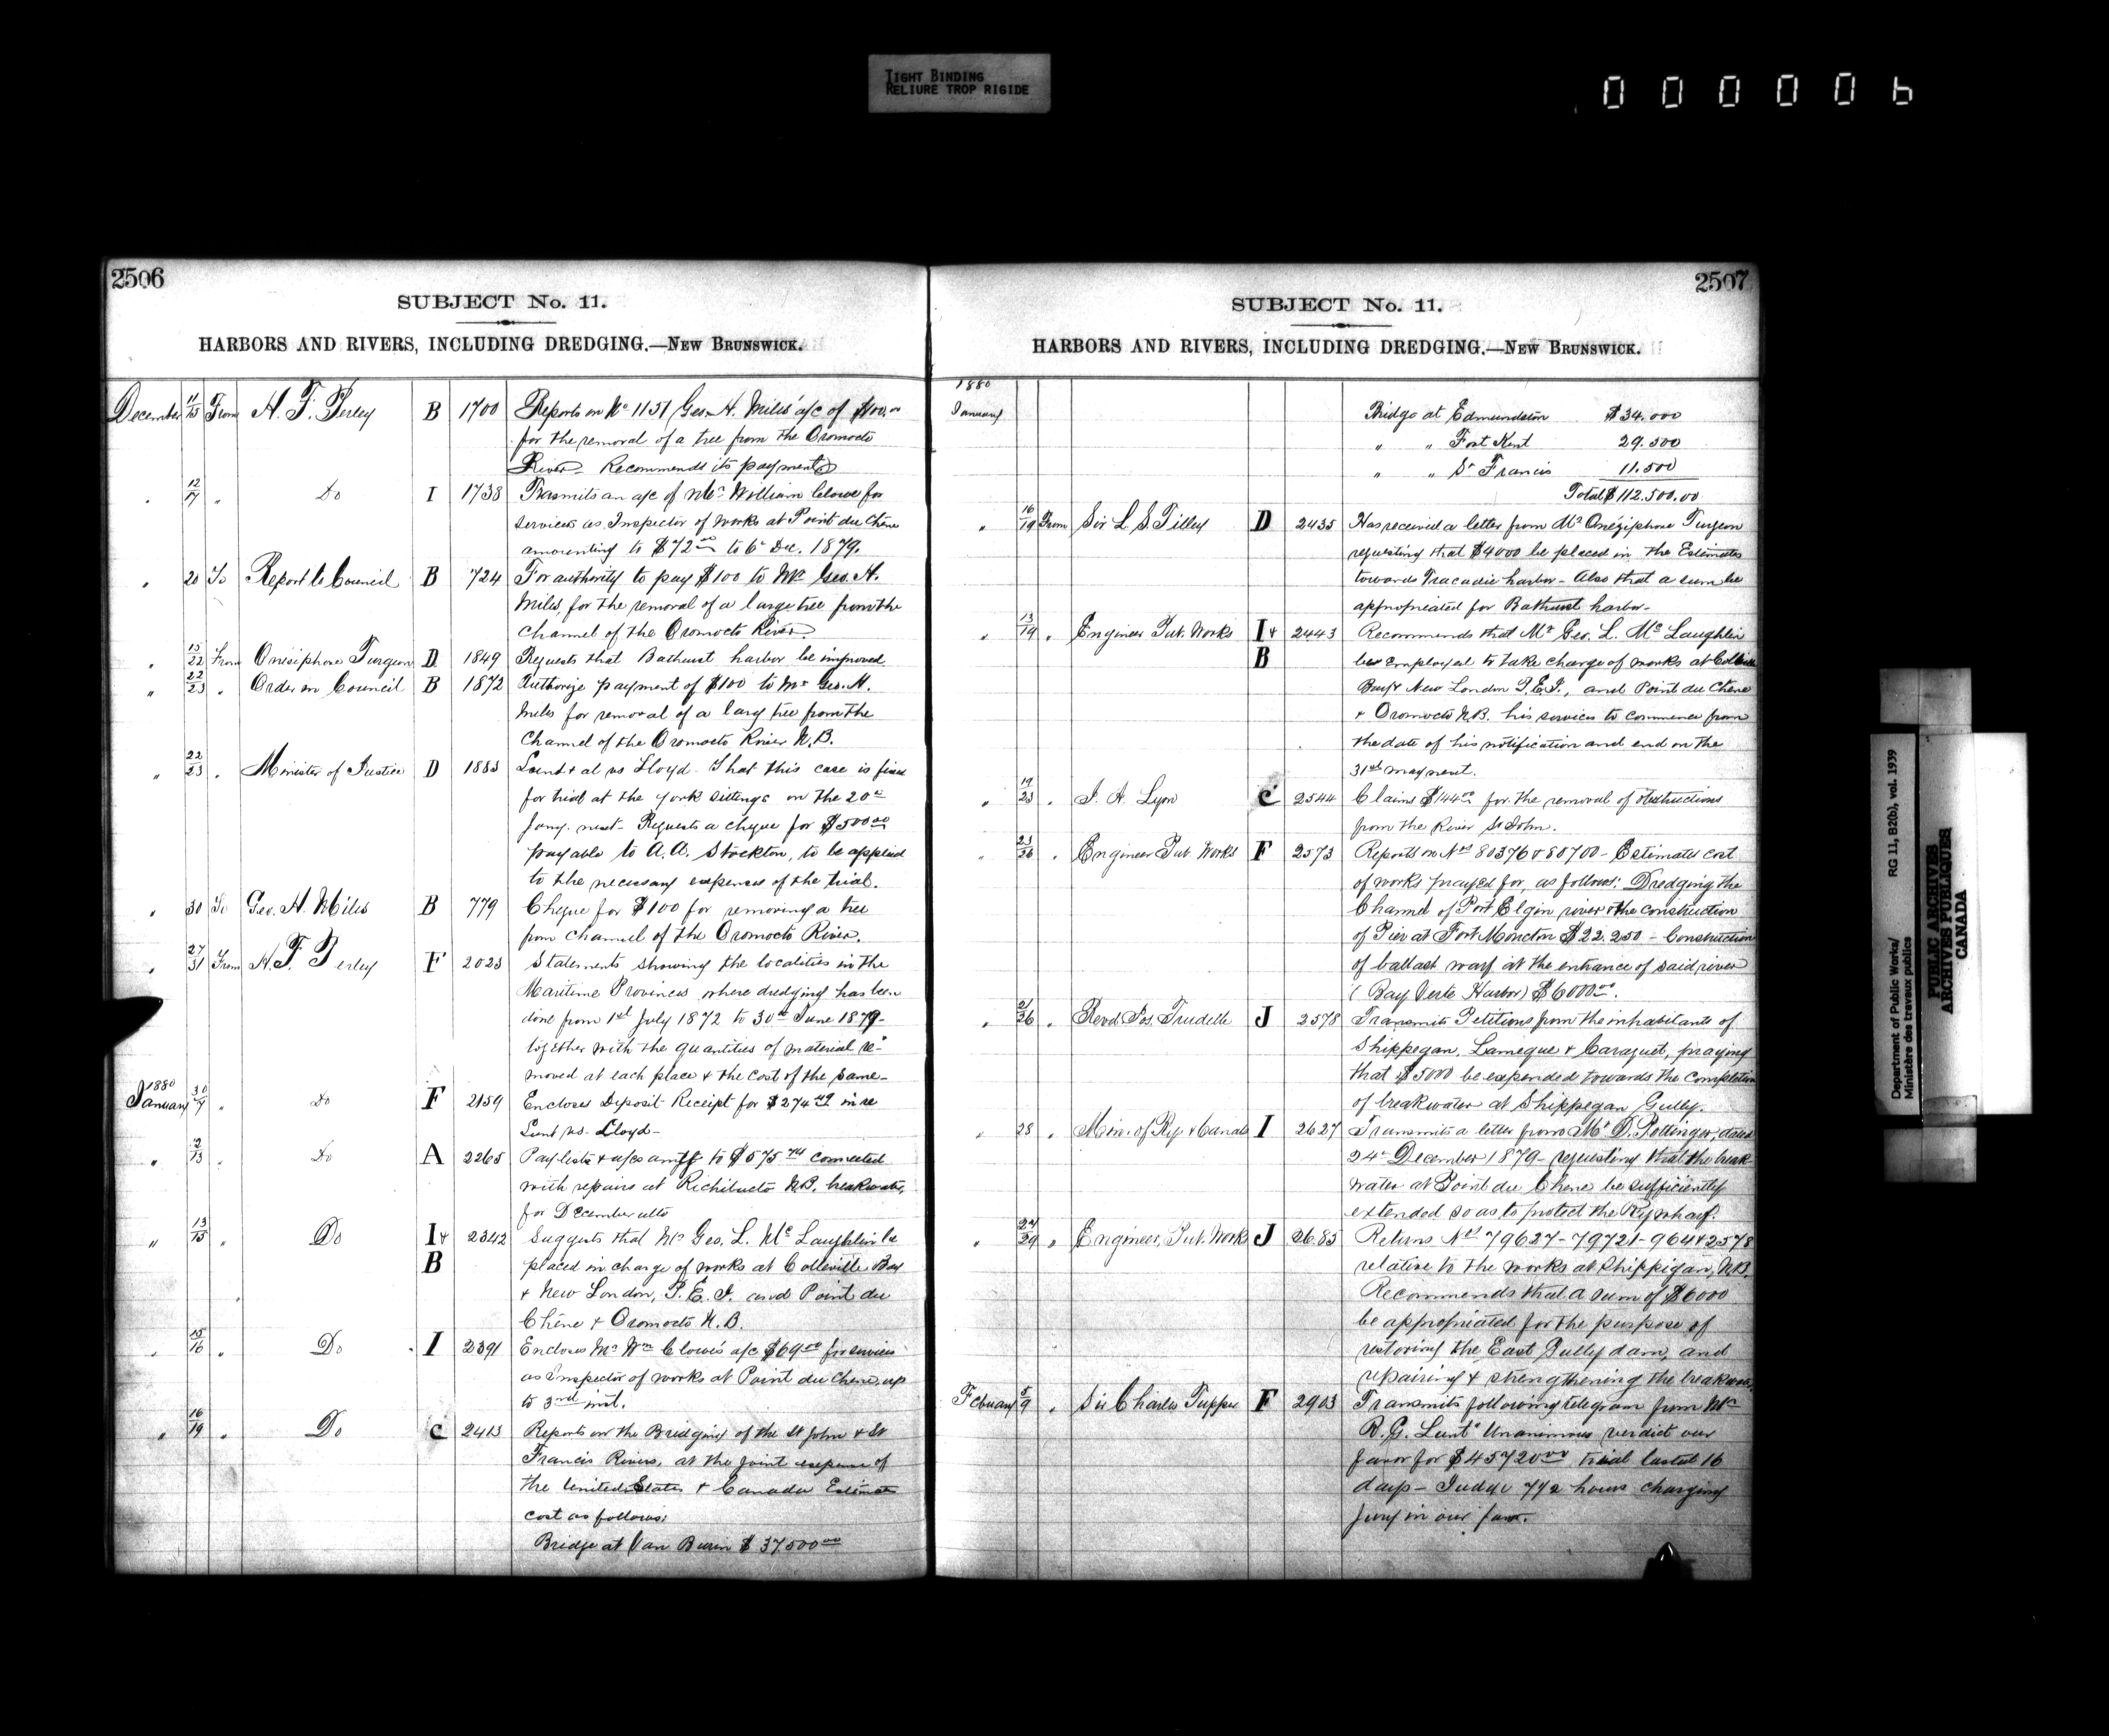 TIGHT BINDING
RELIURE TROP RIGIDE
000006
2506
SUBJECT No. 11.
HARBORS AND RIVERS, INCLUDING DREDGING.—NEW BRUNSWICK.
December 11/15 From H. F. Perley B 1700 Reports on No 1151 Geo. H. Miles' a/c of $100.00
for the removal of a tree from the Oromocto
River. Recommends its payment
" 12/17 " Do I 1738 Trasmits an a/c of Mr William Clowe for
services as Inspector of works at Point du Chene
amounting to $72.00 to 6th Dec. 1879.
" 20 To Report to Council B 724 For authority to pay $100 to Mr Geo. H.
Miles, for the removal of a large tree from the
channel of the Oromocto River.
" 15/22 From Onesiphore Turgeon D 1849 Requests that Bathurst harbor be improved
" 22/23 " Order in Council B 1872 Authorize payment of $100 to Mr Geo. H.
Miles for removal of a larg tree from the
Channel of the Oromocto River N.B.
" 22/23 " Minister of Justice D 1883 Lunt & al vs Lloyd. That this case is fixed
for trial at the York sittings on the 20th
Jany. next - Requests a cheque for $500.00
payable to A. A. Stockton, to be applied
to the necessary expenses of the trial.
" 30 To Geo. H. Miles B 779 Cheque for $100 for removing a tree
from channel of the Oromocto River.
" 27/31 From H. F. Perley F 2023 Statements showing the localities in the
Maritime Provinces where dredging has been
done from 1st July 1872 to 30th June 1879-
together with the quantities of material re-
moved at each place & the cost of the same-
1880
January 30/7 " Do F 2159 Encloses Deposit Receipt for $274.49 in re
Lunt vs. Lloyd-
" 2/13 " Do A 2265 Paylists & a/cs amtg to $575.74 connected
with repairs at Richibucto N.B. breakwater,
for December ulto
" 13/15 " Do I & 2342 Suggests that Mr Geo. L. McLaughlin be
B placed in charge of works at Colleville Bay
& New London, P.E.I. and Point du
Chêne & Oromocto N.B.
" 15/16 " Do I 2391 Encloses Mr Wm Clowe's a/c $69.00 for services
as Inspector of works at Point du Chene, up
to 3rd inst.
" 16/19 Do C 2413 Reports on the Bridging of the St John & St
Francis Rivers, at the joint expense of
the United States & Canada Estimate
cost as follows:
Bridge at Van Buren $37500.00
2507
SUBJECT No. 11.
HARBORS AND RIVERS, INCLUDING DREDGING.—NEW BRUNSWICK.
1880
January Bridge at Edmundston $34.000
" " Fort Kent 29.500
" " St Francis 11.500
Total $112.500.00
" 16/19 From Sir L. S. Tilley D 2435 Has received a letter from Mr Onégiphore Turgeon
requesting that $4000 be placed in the Estimates
towards Tracadie harbor - Also that a sum be
appropriated for Bathurst harbor-
" 13/19 " Engineer Pub. Works I & 2443 Recommends that Mr Geo. L. McLaughlin
B be employed to take charge of works at
Bay & New London P.E.I., and Point du Chene
& Oromocto N.B. his services to commence from
the date of his notification and end on the
31st May next.
" 19/23 " J. A. Lyon C 2544 Claims $144.00 for the removal of obstructions
from the River St John.
" 23/26 " Engineer Pub. Works F 2573 Reports on Nos 80376 & 80700 - Estimates cost
of works prayed for, as follows: Dredging the
Channel of Port Elgin river & the construction
of Pier at Fort Moncton $22.250 - Construction
of ballast warf at the entrance of said river
(Bay Verte Harbor) $6000.00.
" 21/26 " Revd Jos. Trudelle J 2578 Transmits Petitions from the inhabitants of
Shippegan, Lameque & Caraquet, praying
that $5000 be expended towards the completion
of breakwater at Shippegan Gully.
" 28 " Min. of Ry. & Canals I 2627 Transmits a letter from Mr D. Pottinger, dated
24th December 1879- requesting that the break-
water at Point du Chene be sufficiently
extended so as to protect the Ry wharf.
" 24/29 " Engineer, Pub. Works J 2685 Returns Nos 79627-79721-964 & 2578
relative to the works at Shippigan, N.B.
Recommends that a sum of $6000
be appropriated for the purpose of
restoring the East Gully dam, and
repairing & strengthening the breakwater.
Febuary 5/9 " Sir Charles Tupper F 2903 Transmits following telegram from Mr
R. G. Lunt "Unanimous verdict our
favor for $45720.00 trial lasted 16
days - Judge 7 1/2 hours charging
jury in our favor.
Department of Public Works/ RG 11, B2(b), vol. 1939
Ministère des travaux publics
PUBLIC ARCHIVES
ARCHIVES PUBLIQUES
CANADA